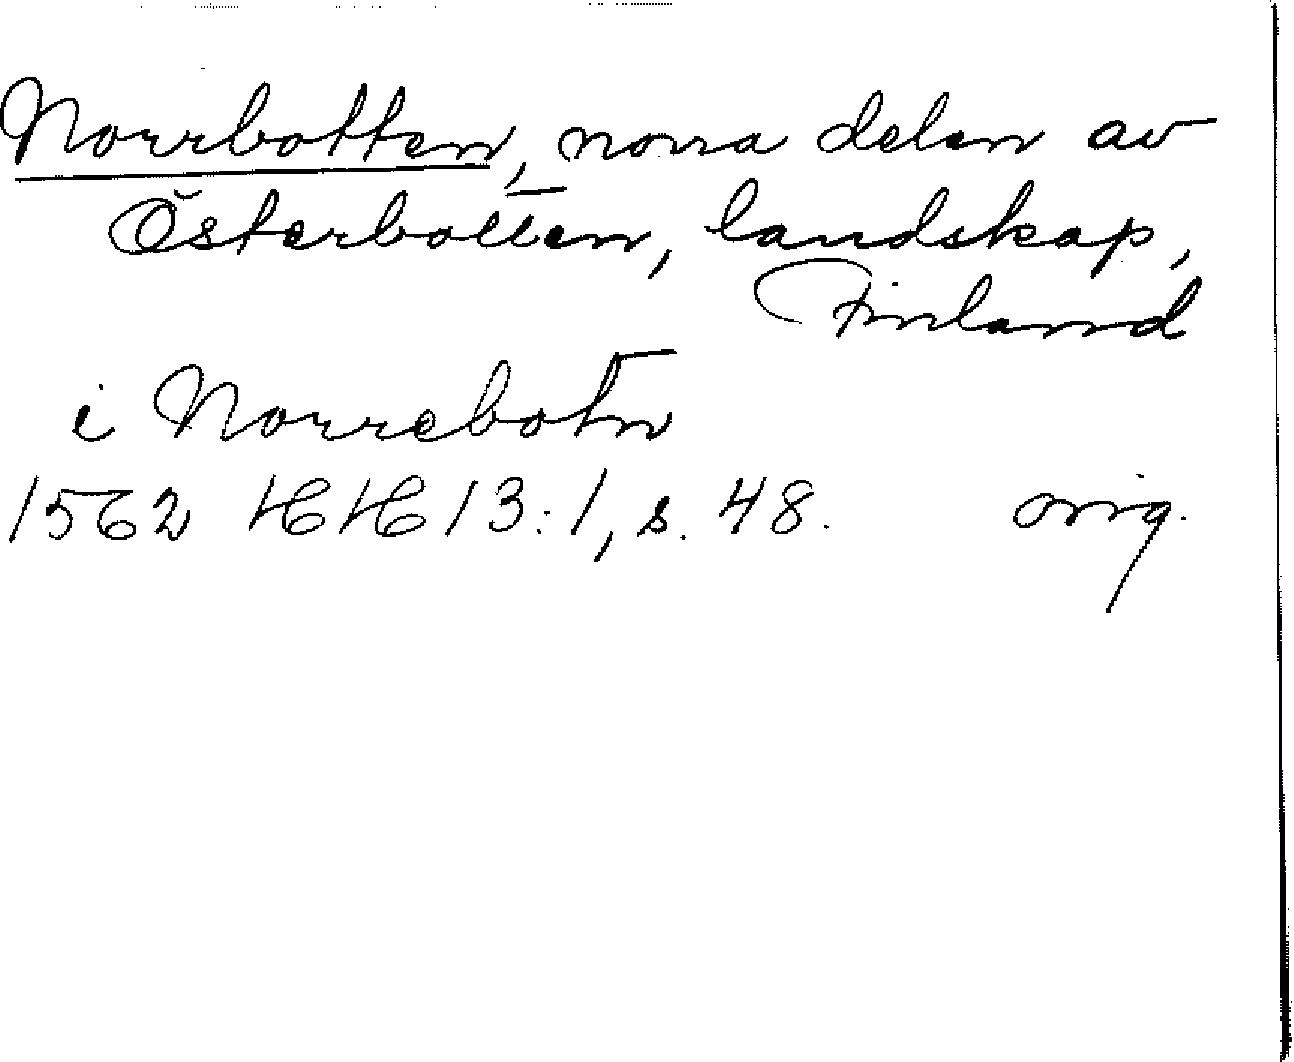 Norrbotten, norra delen av
Österbotten, landskap,
Finland
i Norrebotn
1562 HH 13:1, s. 48. orig.